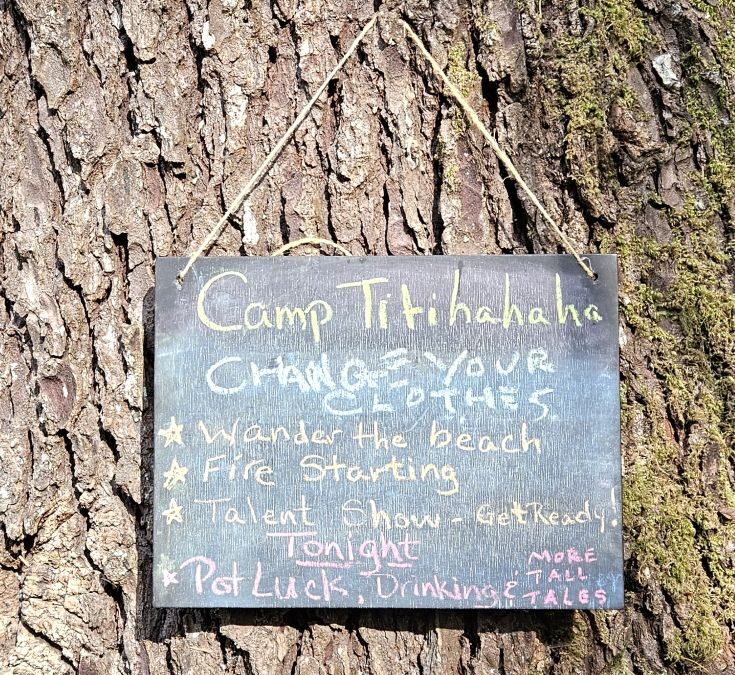 Camp Titihahaha
CHANGE YOUR
CLOTHES
☆ Wander the beach
☆ Fire Starting
☆ Talent Show - Get Ready!
Tonight
☆ Pot Luck, Drinking &
MORE
TALL
TALES